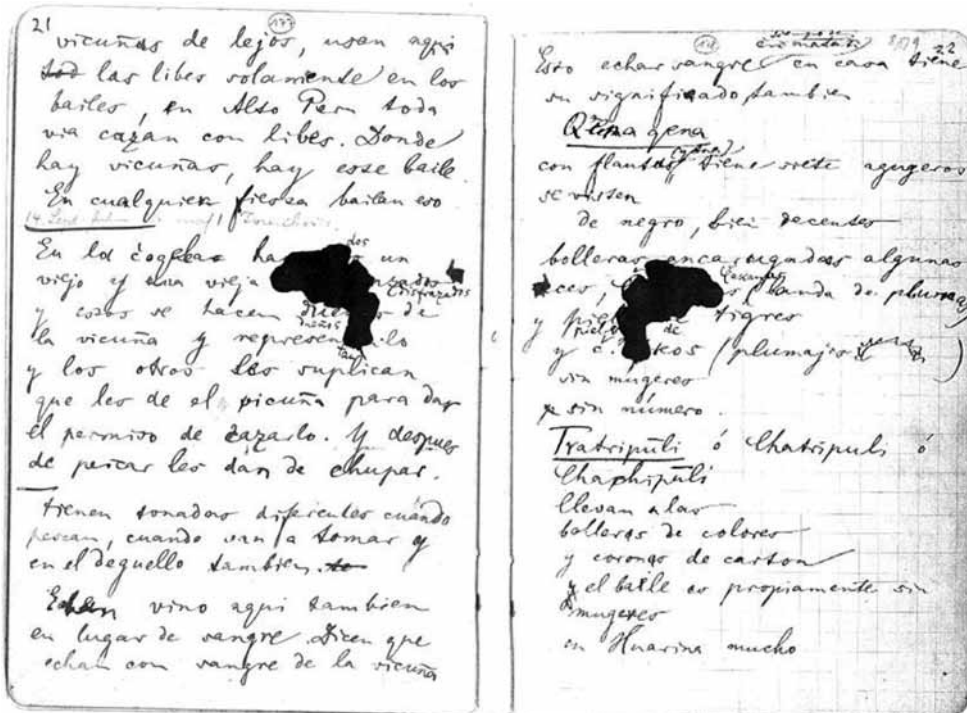 21
177
vicuñas de lejos, usan aqui
tod las libes solamente en los
bailes, en Alto Peru toda
via cazan con libes. Donde
hay vicuñas, hay esse baile.
En cualquier fiessa bailan eso
En la un
dos
viejo y una vieja
disfrazados
y esos se hacen de
dueños
la vicuña y
tan
y los otros les suplican
que les de el vicuña para dar
el permiso de cazarlo. Y despues
de pescar les dán de chupar.
tienen sonadas diferentes cuándo
pescan, cuando van a tomar y
en el deguello tambien. to
Echan vino aqui tambien
en lugar de sangre. Dicen que
echan con sangre de la vicuña
22
Esto echar sangre en casa tiene
su significado tambien
Qena qena
con flautas tiene siete agugeros
se vissen
de negro, bien decentes
bolleras encarrugadas algunas
(banda de plumas)
y tigres
pieles de
y (plumajes
sin mugeres
y sin número.
Txatripúli ó Chatripuli ó
Chachipúli
llevan alas
bolleras de colores
y coronas de carton
y el baile es propiamente sin
mugeres
en Huarina mucho